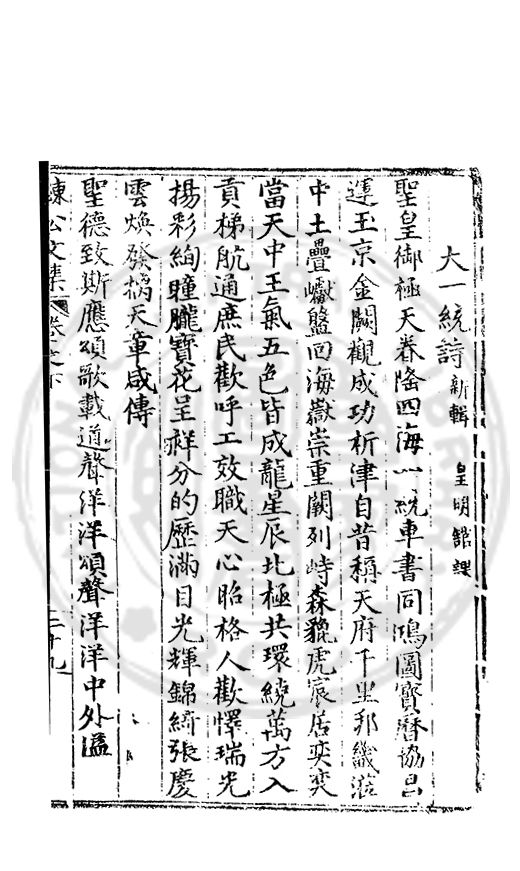 大一統詩新輯 皇明館課
聖皇御極天眷隆四海一統車書同鴻圖寶曆協昌
運玉京金闕觀成功析津自昔稱天府千里邦畿滋
中土疊巘盤回海嶽崇重闕列峙森貔虎宸居奕奕
當天中王氣五色皆成龍星辰北極共環繞萬方入
貢梯航通庶民歡呼工效職天心昭格人歡懌瑞光
揚彩絢曈曨寶花呈祥分的歷滿目光輝錦綺張慶
雲煥發摛天章咸傳
聖德致斯應頌歌載道聲洋洋頌聲洋洋中外溢
陳公文集 卷之下 二十九